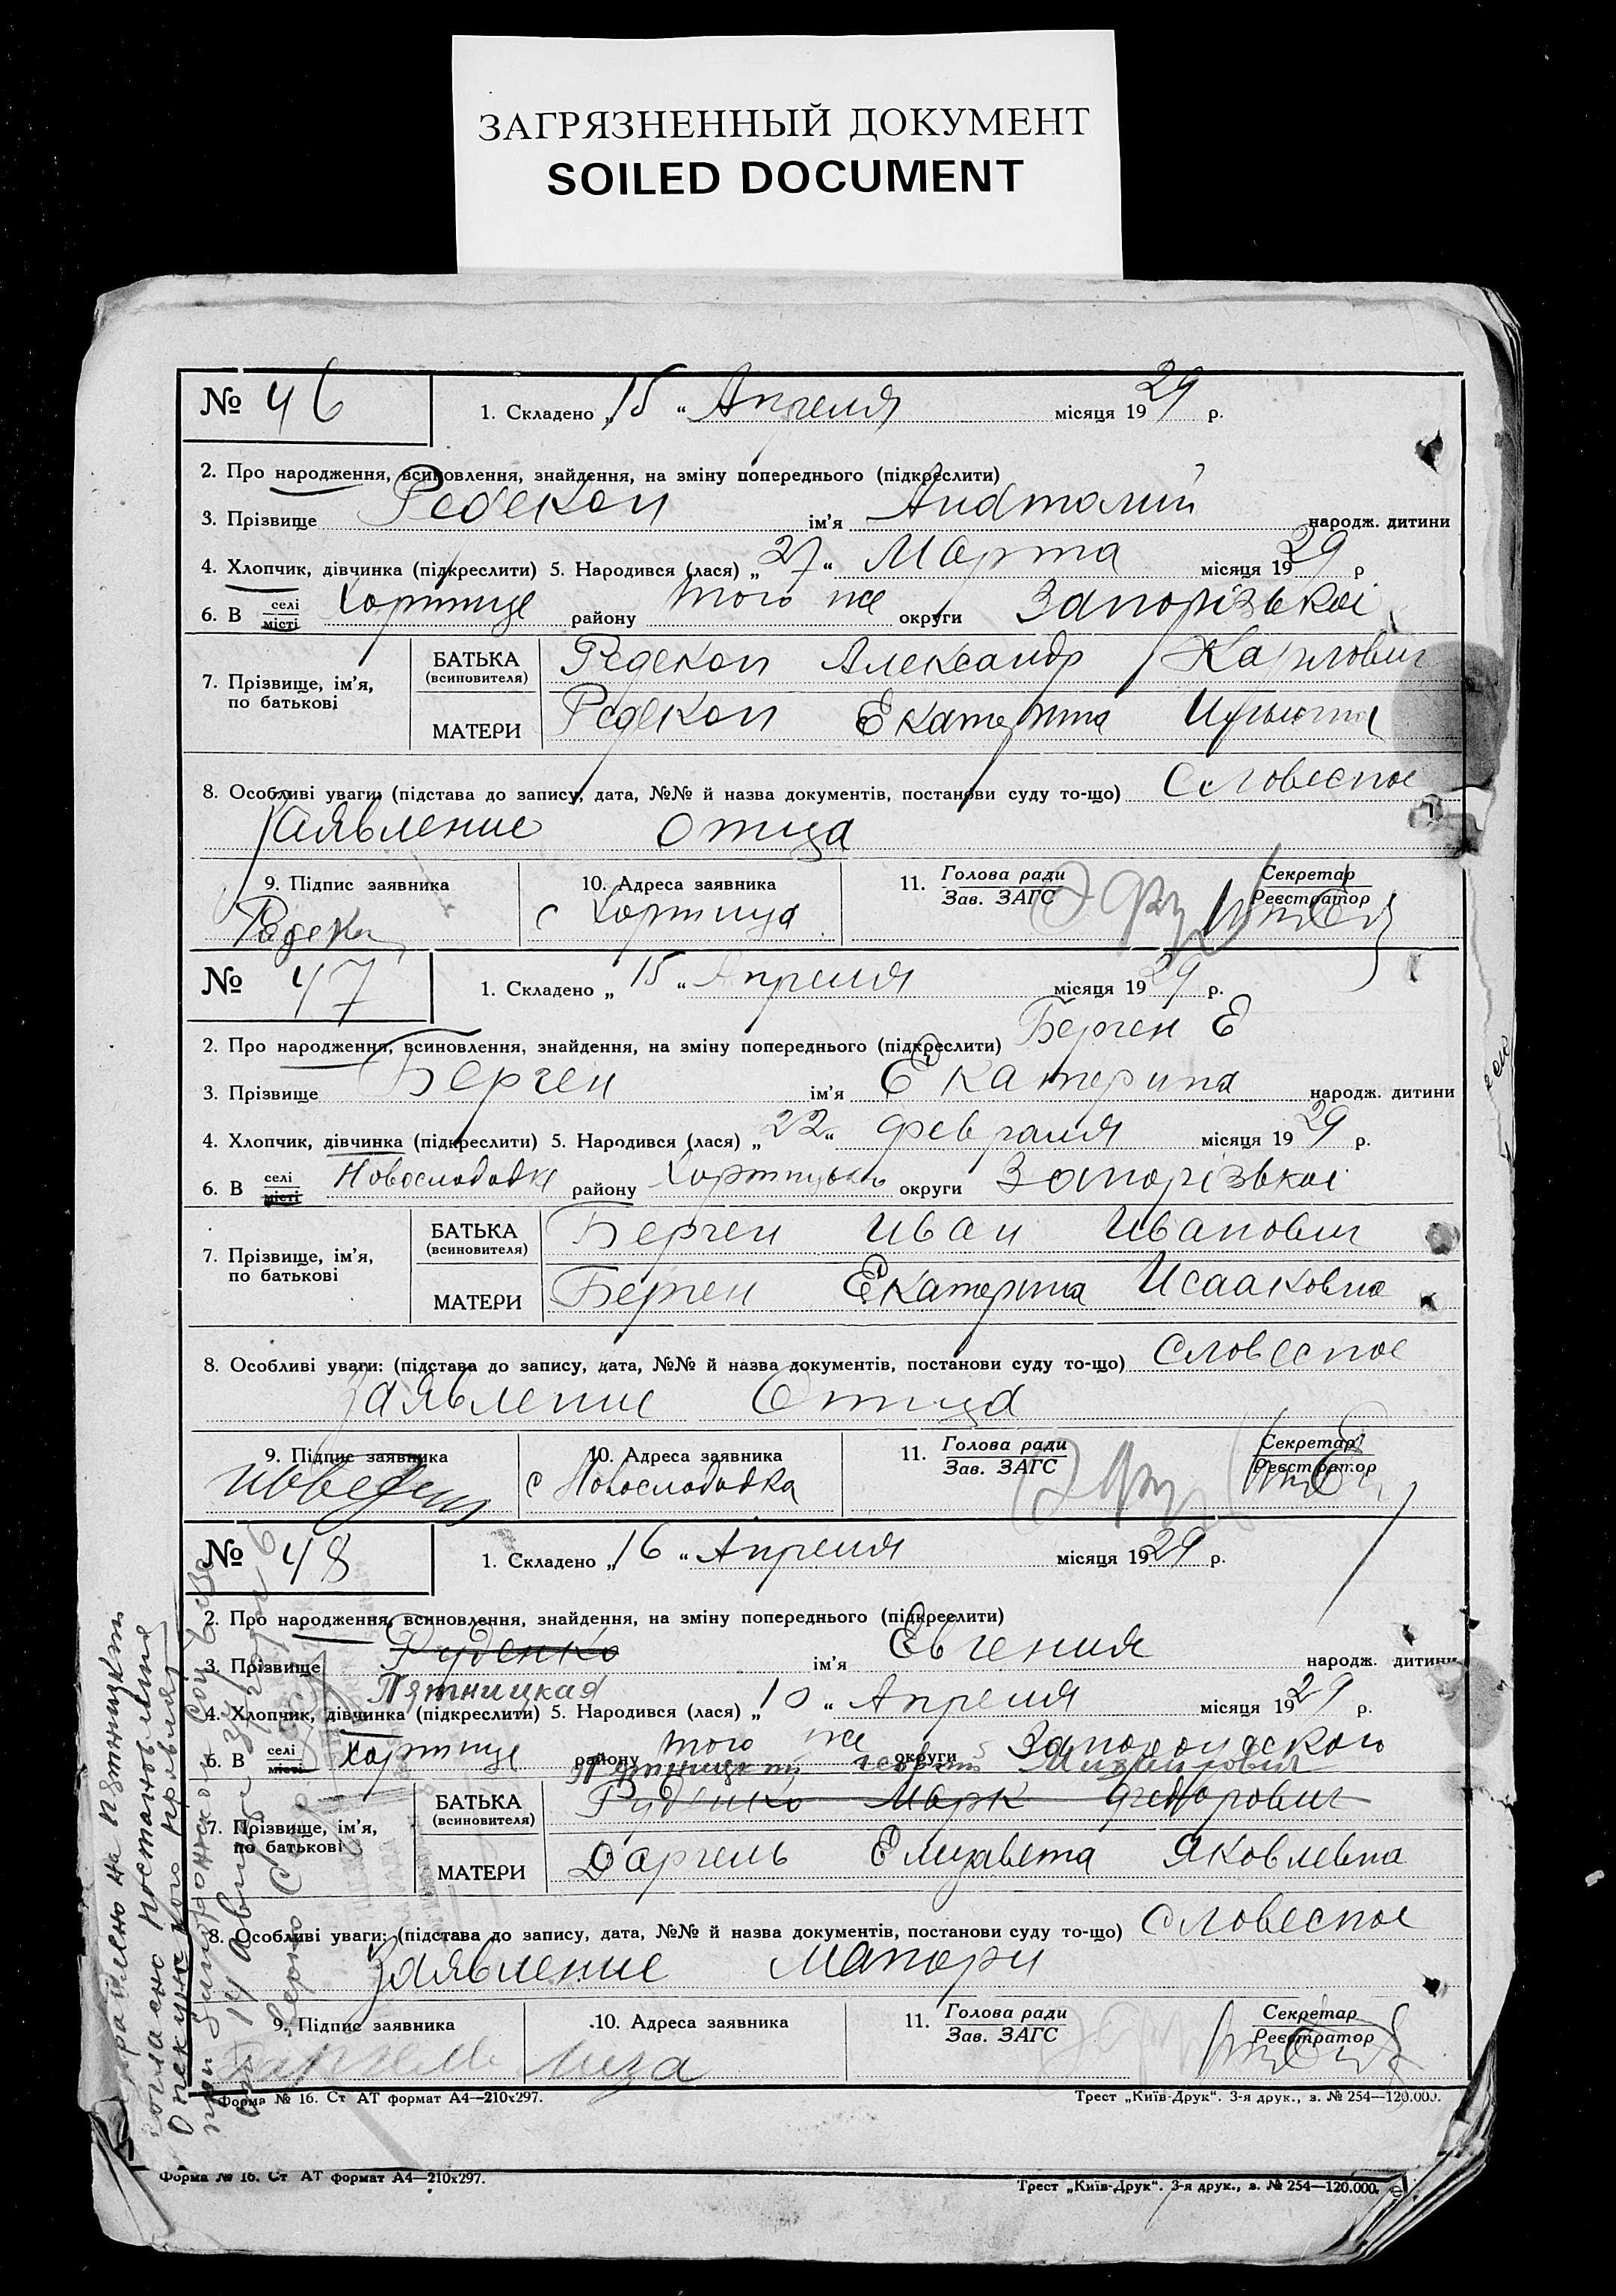 ЗАГРЯЗНЕННЫЙ ДОКУМЕНТ
SOILED DOCUMENT
№ 46
1. Складено „15“ Апреля місяця 1929 р.
2. Про народження, всиновлення, знайдення, на зміну попереднього (підкреслити)
3. Прізвище Редекоп ім'я Анатолий народж. дитини
4. Хлопчик, дівчинка (підкреслити) 5. Народився (лася) „27“ Марта місяця 1929 р
6. В селі місті Хортице району того же округи Запорізькоі
7. Прізвище, ім'я, по батькові
БАТЬКА (всиновителя) Редекоп Александр Карлович
МАТЕРИ Редекоп Екатерина
8. Особливі уваги: (підстава до запису, дата, №№ й назва документів, постанови суду то-що) Словесное
Заявление отца
9. Підпис заявника
10. Адреса заявника
11. Голова ради Зав. ЗАГС
Секретар Реєстратор
с Хортица
№ 47
1. Складено „15“ Апреля місяця 1929 р.
Берген Е
2. Про народження, всиновлення, знайдення, на зміну попереднього (підкреслити)
3. Прізвище Берген ім'я Екатерина народж. дитини
4. Хлопчик, дівчинка (підкреслити) 5. Народився (лася) „22“ февраля місяця 1929 р.
6. В селі місті Новослободке району округи Запорізькоі
7. Прізвище, ім'я, по батькові
БАТЬКА (всиновителя) Берген Иван Иванович
МАТЕРИ Берген Екатерина Исааковна
8. Особливі уваги: (підстава до запису, дата, №№ й назва документів, постанови суду то-що) Словесное
Заявление Отца
9. Підпис заявника
10. Адреса заявника
11. Голова ради Зав. ЗАГС
Секретар Реєстратор
с Новослободка
№ 48
1. Складено „16“ Апреля місяця 1929 р.
2. Про народження, всиновлення, знайдення, на зміну попереднього (підкреслити)
3. Прізвище Руденко ім'я Евгения народж. дитини
Пятницкая
4. Хлопчик, дівчинка (підкреслити) 5. Народився (лася) „10“ Апреля місяця 1929 р.
6. В селі місті Хортице району того же округи Запорожского
7. Прізвище, ім'я, по батькові
БАТЬКА (всиновителя) Руденко Марк Федорович
МАТЕРИ Даргель Елизавета Яковлевна
8. Особливі уваги: (підстава до запису, дата, №№ й назва документів, постанови суду то-що) Словесное
Заявление Матери
9. Підпис заявника
10. Адреса заявника
11. Голова ради Зав. ЗАГС
Секретар Реєстратор
Лиза
Форма № 16. Ст АТ формат А4—210х297.
Трест „Київ-Друк“. 3-я друк., з. № 254—120.000.
Форма № 16. Ст АТ формат А4—210х297.
Трест „Київ-Друк“. 3-я друк., з. № 254—120.000.